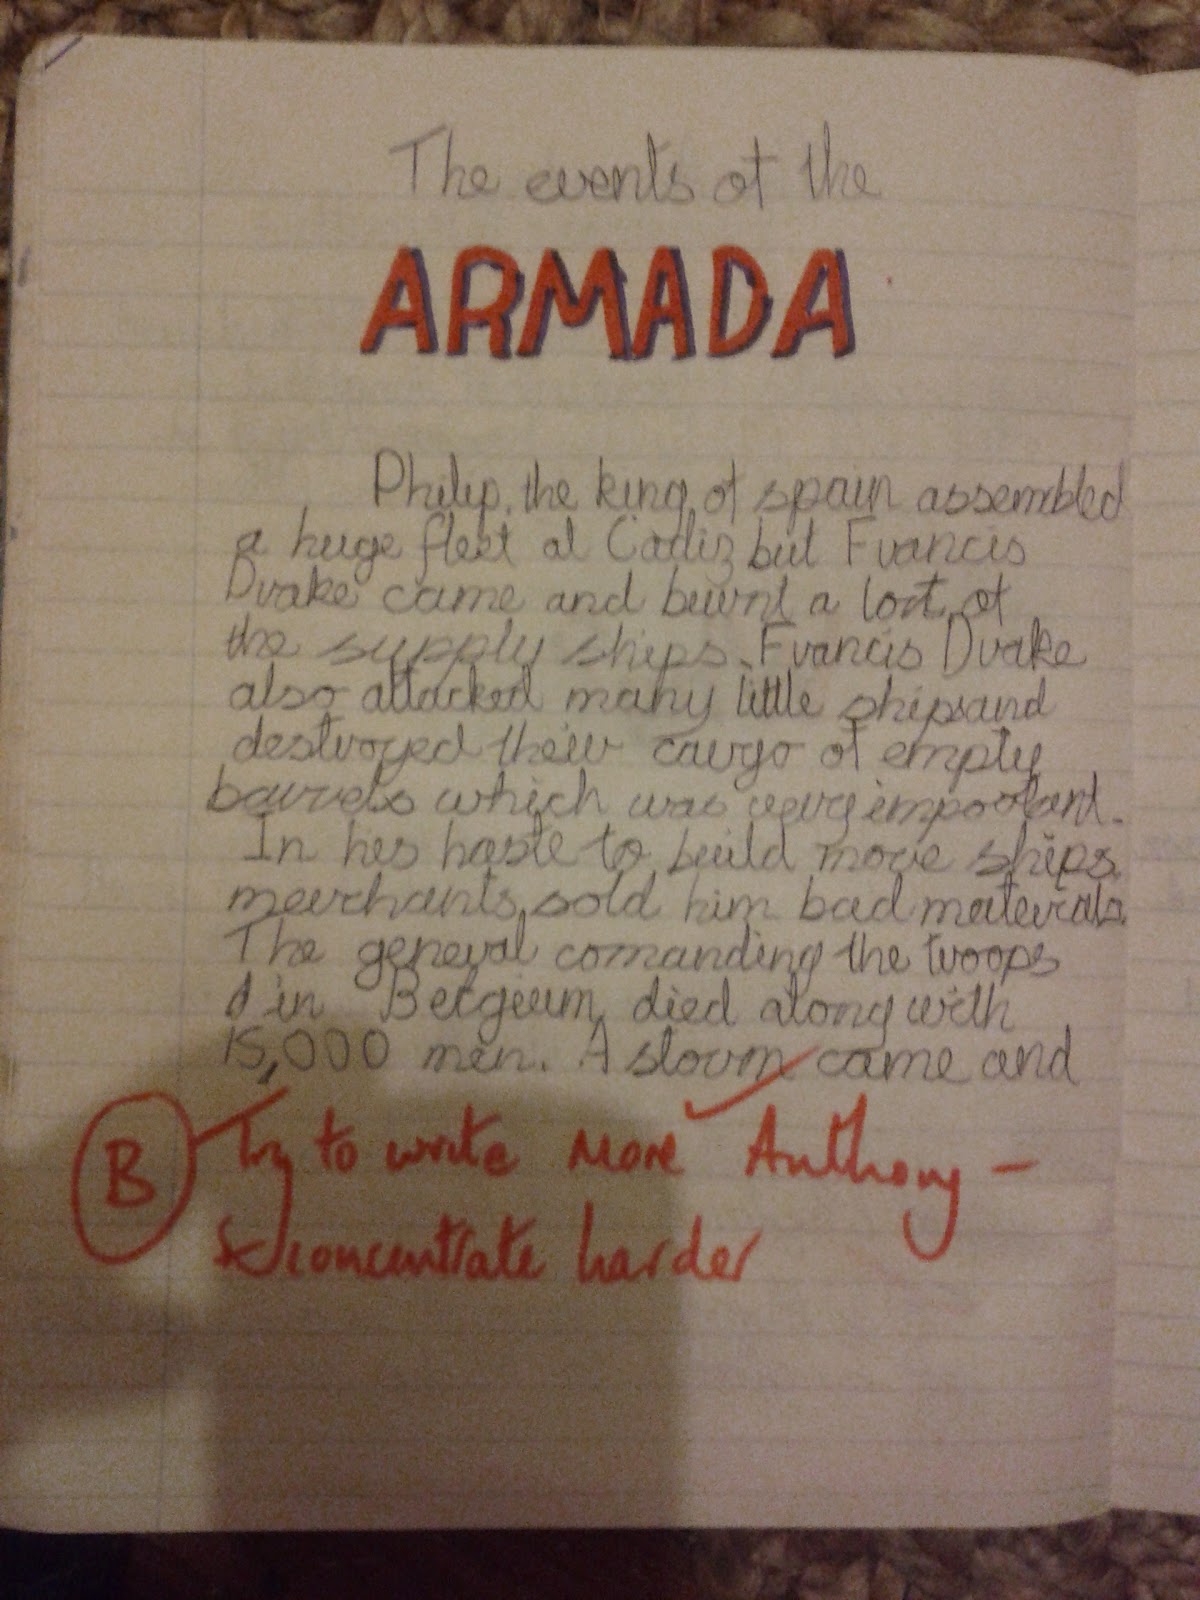 The events of the
ARMADA
Philip, the king of spain assembled
a huge fleet at Cadiz but Francis
Drake came and burnt a lort of
the supply ships. Francis Drake
also attacked many little ships and
destroyed their cargo of empty
barrels which was very impootant.
In his haste to build more ships
merchants sold him bad materials.
The general comanding the troops
in Belgium died along with
15,000 men. A storm came and
B Try to write more Anthony -
concentrate harder